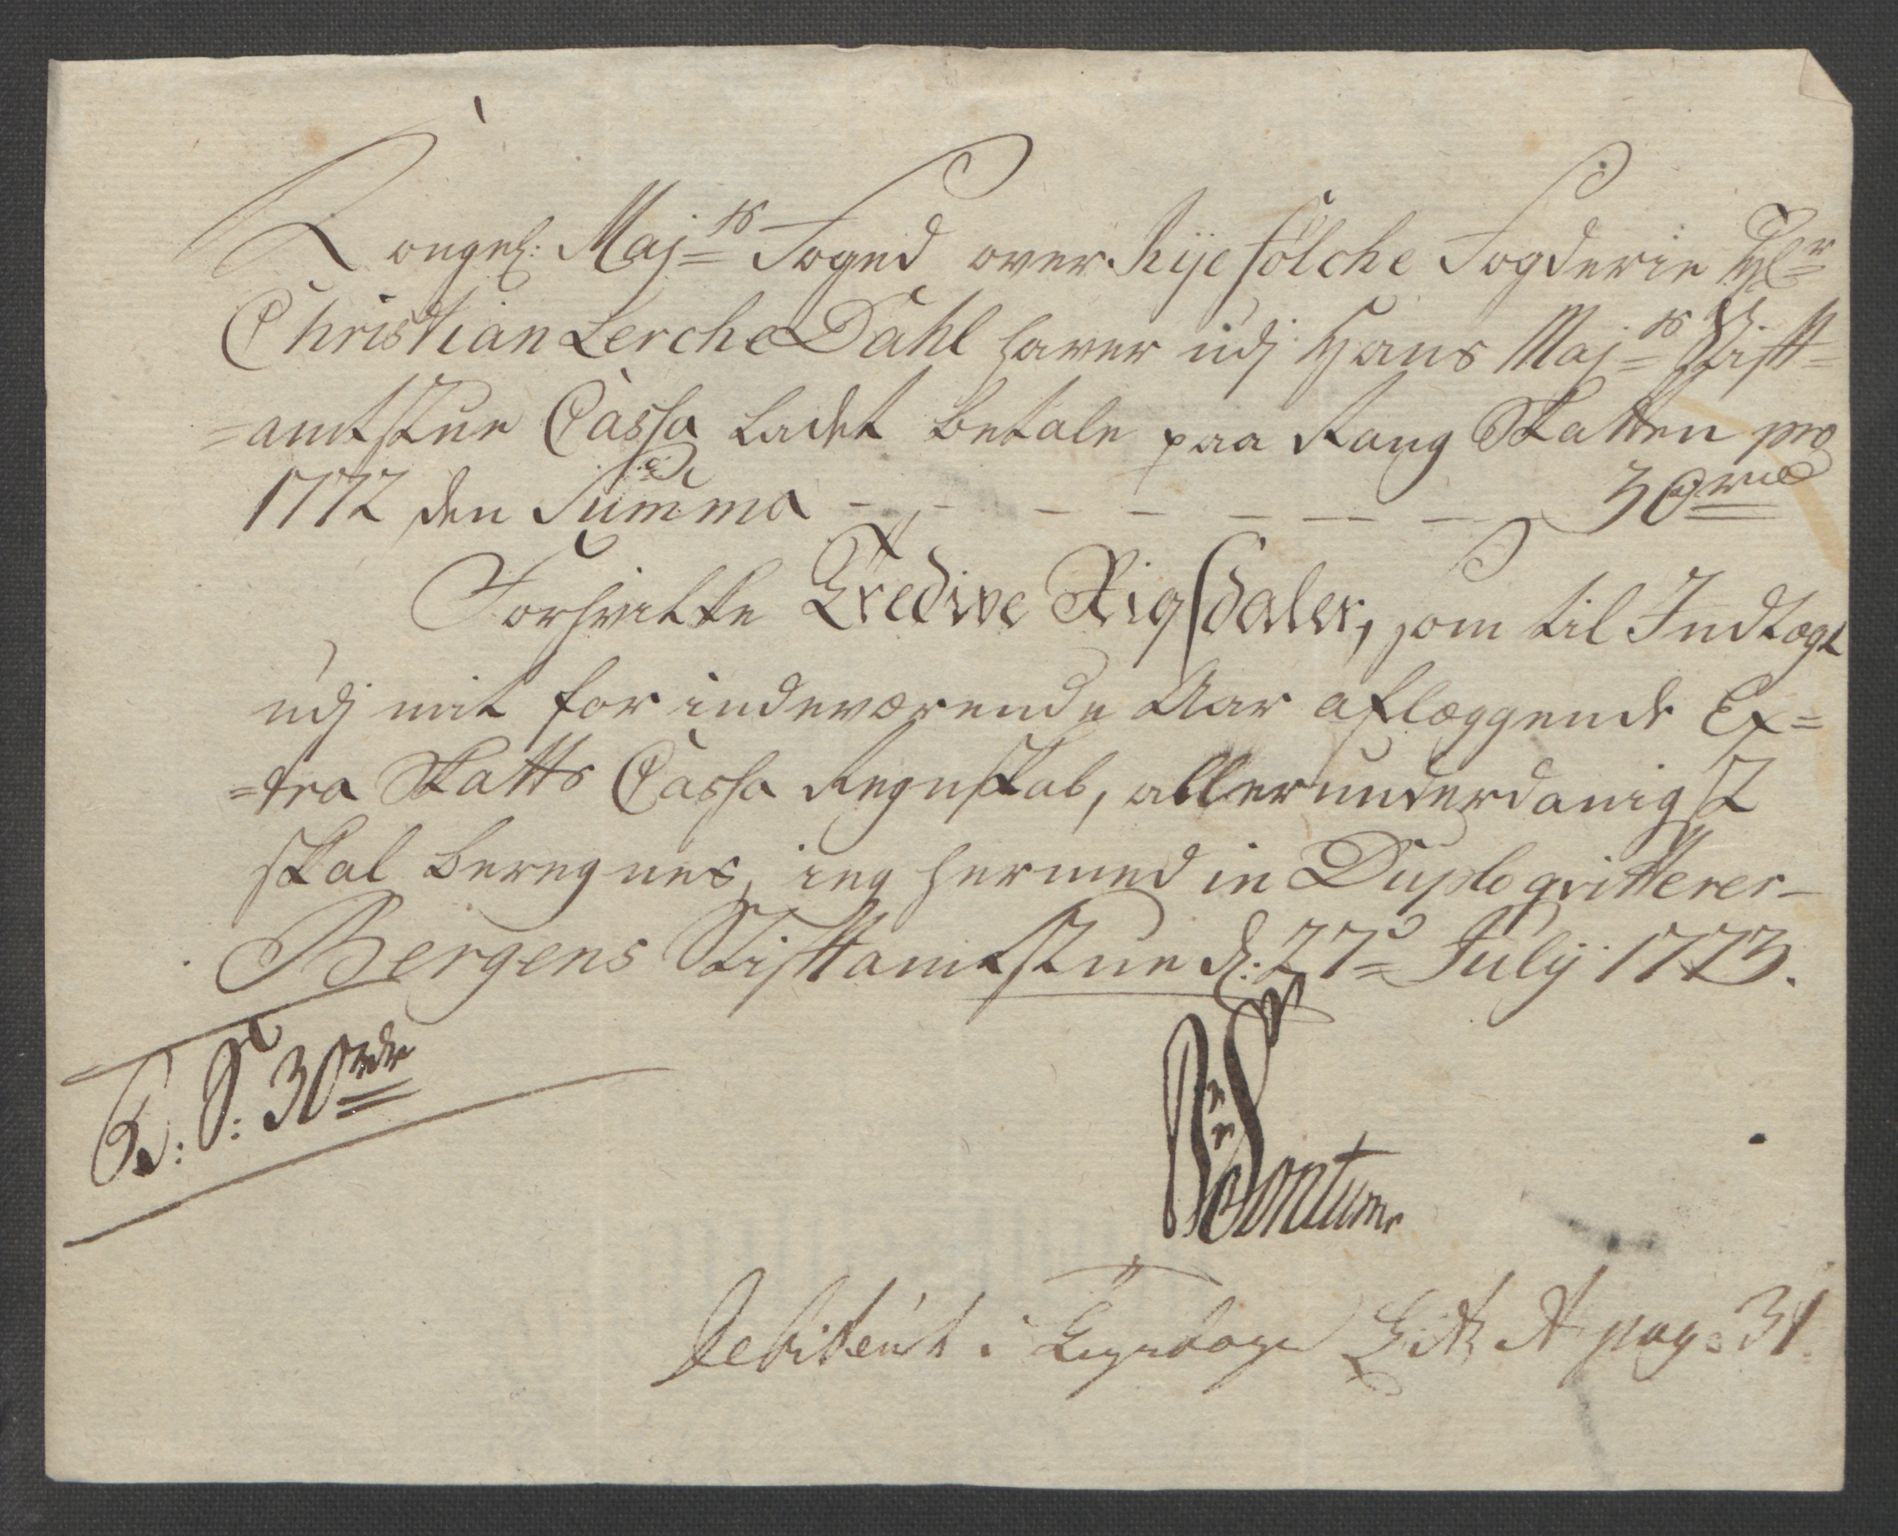 Kongel: Maj:ts Foged over Ryefølche Fogderie Hr
Christian Lerche Dahl haver udj Hans Maj:ts Stift=
=amtstue Cassa ladet betale paa Rang Skatten pro
1772 den Summa - - - - - - - 30 rd
Forhvilke Tredive Rigsdaler, som til Indtægt
udj mit for indeværende Aar aflæggende Ex=
=tra Skatts Cassa Regnskab, allerunderdanigst
skal beregnes, ieg hermed in Duplo qvitterer-
Bergens Stiftamtstue d: 27de Julij 1773.
S: 30 rdr
Sontum
Debiteret i Lit A pag: 31.